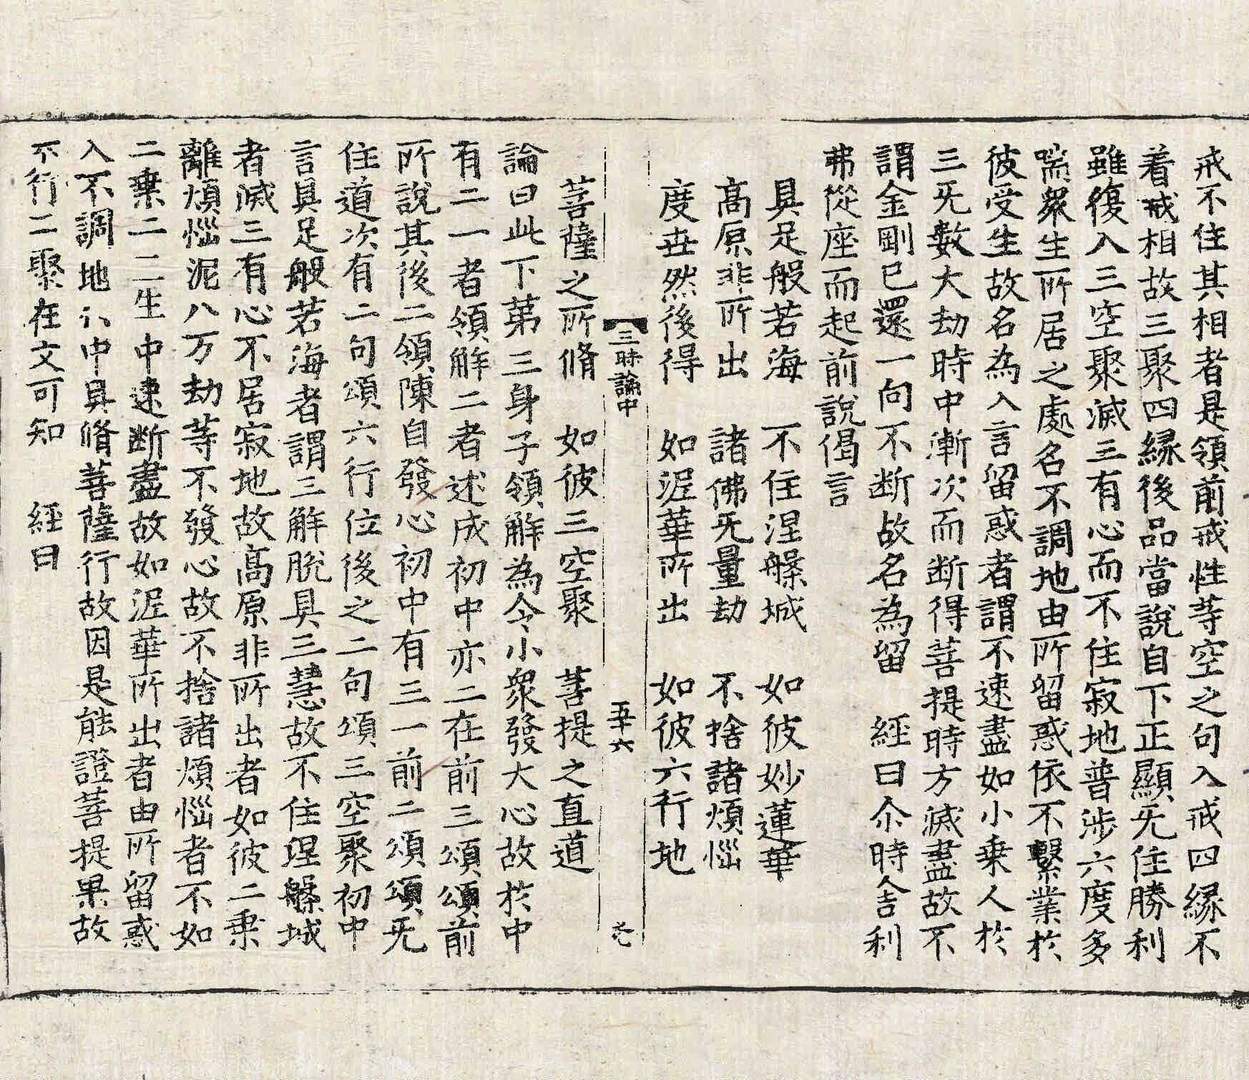 戒不住其相者是領前戒性等空之句入戒四緣不
着戒相故三聚四縁後品當說自下正顯旡住勝利
雖復入三空聚滅三有心而不住寂地普涉六度多
喘衆生所居之處名不調地由所留惑依不繫業於
彼受生故名為入言留惑者謂不速盡如小乗人於
三旡數大劫時中漸次而断得菩提時方滅盡故不
謂金剛已還一句不断故名為留　經曰尒時舎利
弗從座而起前說偈言
具足般若海　不住涅槃城　如彼妙蓮華
高原非所出　諸佛旡量劫　不捨諸煩惱
度世然後得　如泥華所出　如彼六行地
【三昧論中　五十六
菩薩之所脩　如彼三空聚　菩提之直道
論曰此下第三身子領解為令小衆發大心故於中
有二一者領解二者述成初中亦二在前三頌頌前
所說其後二領陳自發心初中有三一前二頌頌旡
住道次有二句頌六行位後之二句頌三空聚初中
言具足般若海者謂三解脫具三慧故不住涅槃城
者滅三有心不居寂地故高原非所出者如彼二乗
離煩惱泥八万劫等不發心故不捨諸煩惱者不如
二乗二二生中速断盡故如泥華所出者由所留惑
入不調地〻中具脩菩薩行故因是能證菩提果故
不行二聚在文可知　經曰